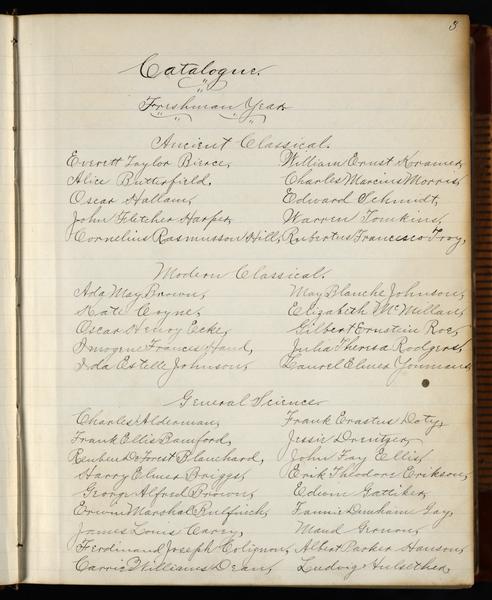 3
Catalogue.
Freshman Year.
Ancient Classical.
Everett Taylor Bierce, William Ernst Kramer,
Alice Butterfield, Charles Marcius Morris,
Oscar Hallam, Edward Schmidt,
John Fletcher Harper, Warren Tomkins,
Cornelius Rasmusson Hill, Rubertus Francesco Troy,
Modern Classical.
Ada May Brown, May Blanche Johnson,
Kate Coyne, Elizabeth McMillan,
Oscar Henry Ecke, Gilbert Ernstein Roe,
Imogene Francis Hand, Julia Theresa Rodgers,
Ida Estelle Johnson, Laurel Elmer Youmans
General Science
Charles Alderman, Frank Erastus Doty,
Frank Ellis Bamford, Jessie
Reuben DeForest Blanchard, John Fay Ellis,
Harry Elmer Briggs, Erik Theodore Erikson,
George Alfred Brown, Edwin
Erwin Marshal Fannie Dunham Gay,
James Louis Maud
Ferdinand Joseph Colignon, Albert Parker Hanson,
Carrie Williams Dean, Ludvig Hulsether,